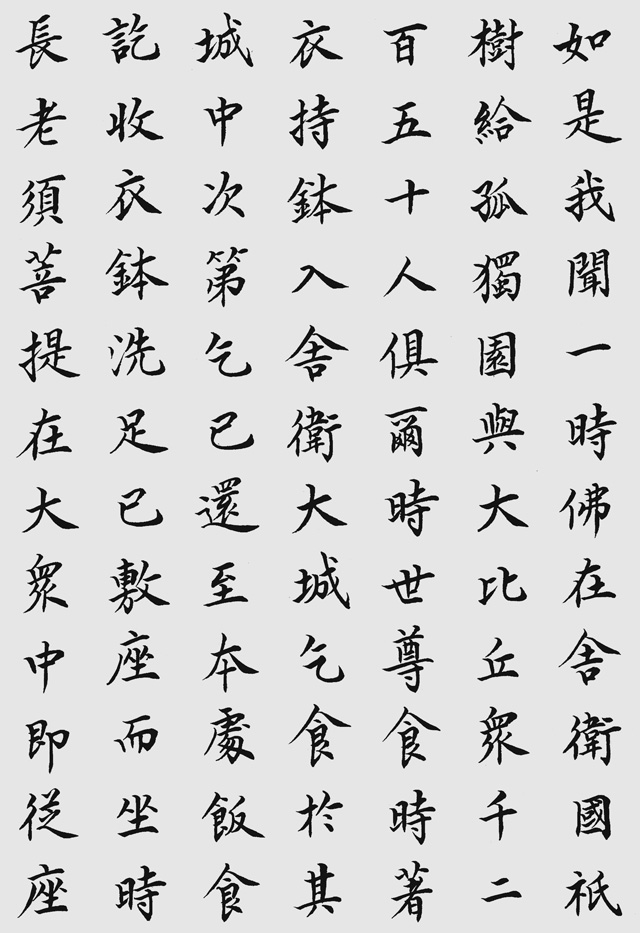 如是我聞一時佛在舍衛國祇
樹給孤獨園與大比丘衆千二
百五十人俱爾時世尊食時著
衣持鉢入舍衛大城乞食於其
城中次第乞已還至本處飯食
訖收衣鉢洗足已敷座而坐時
長老須菩提在大衆中即從座